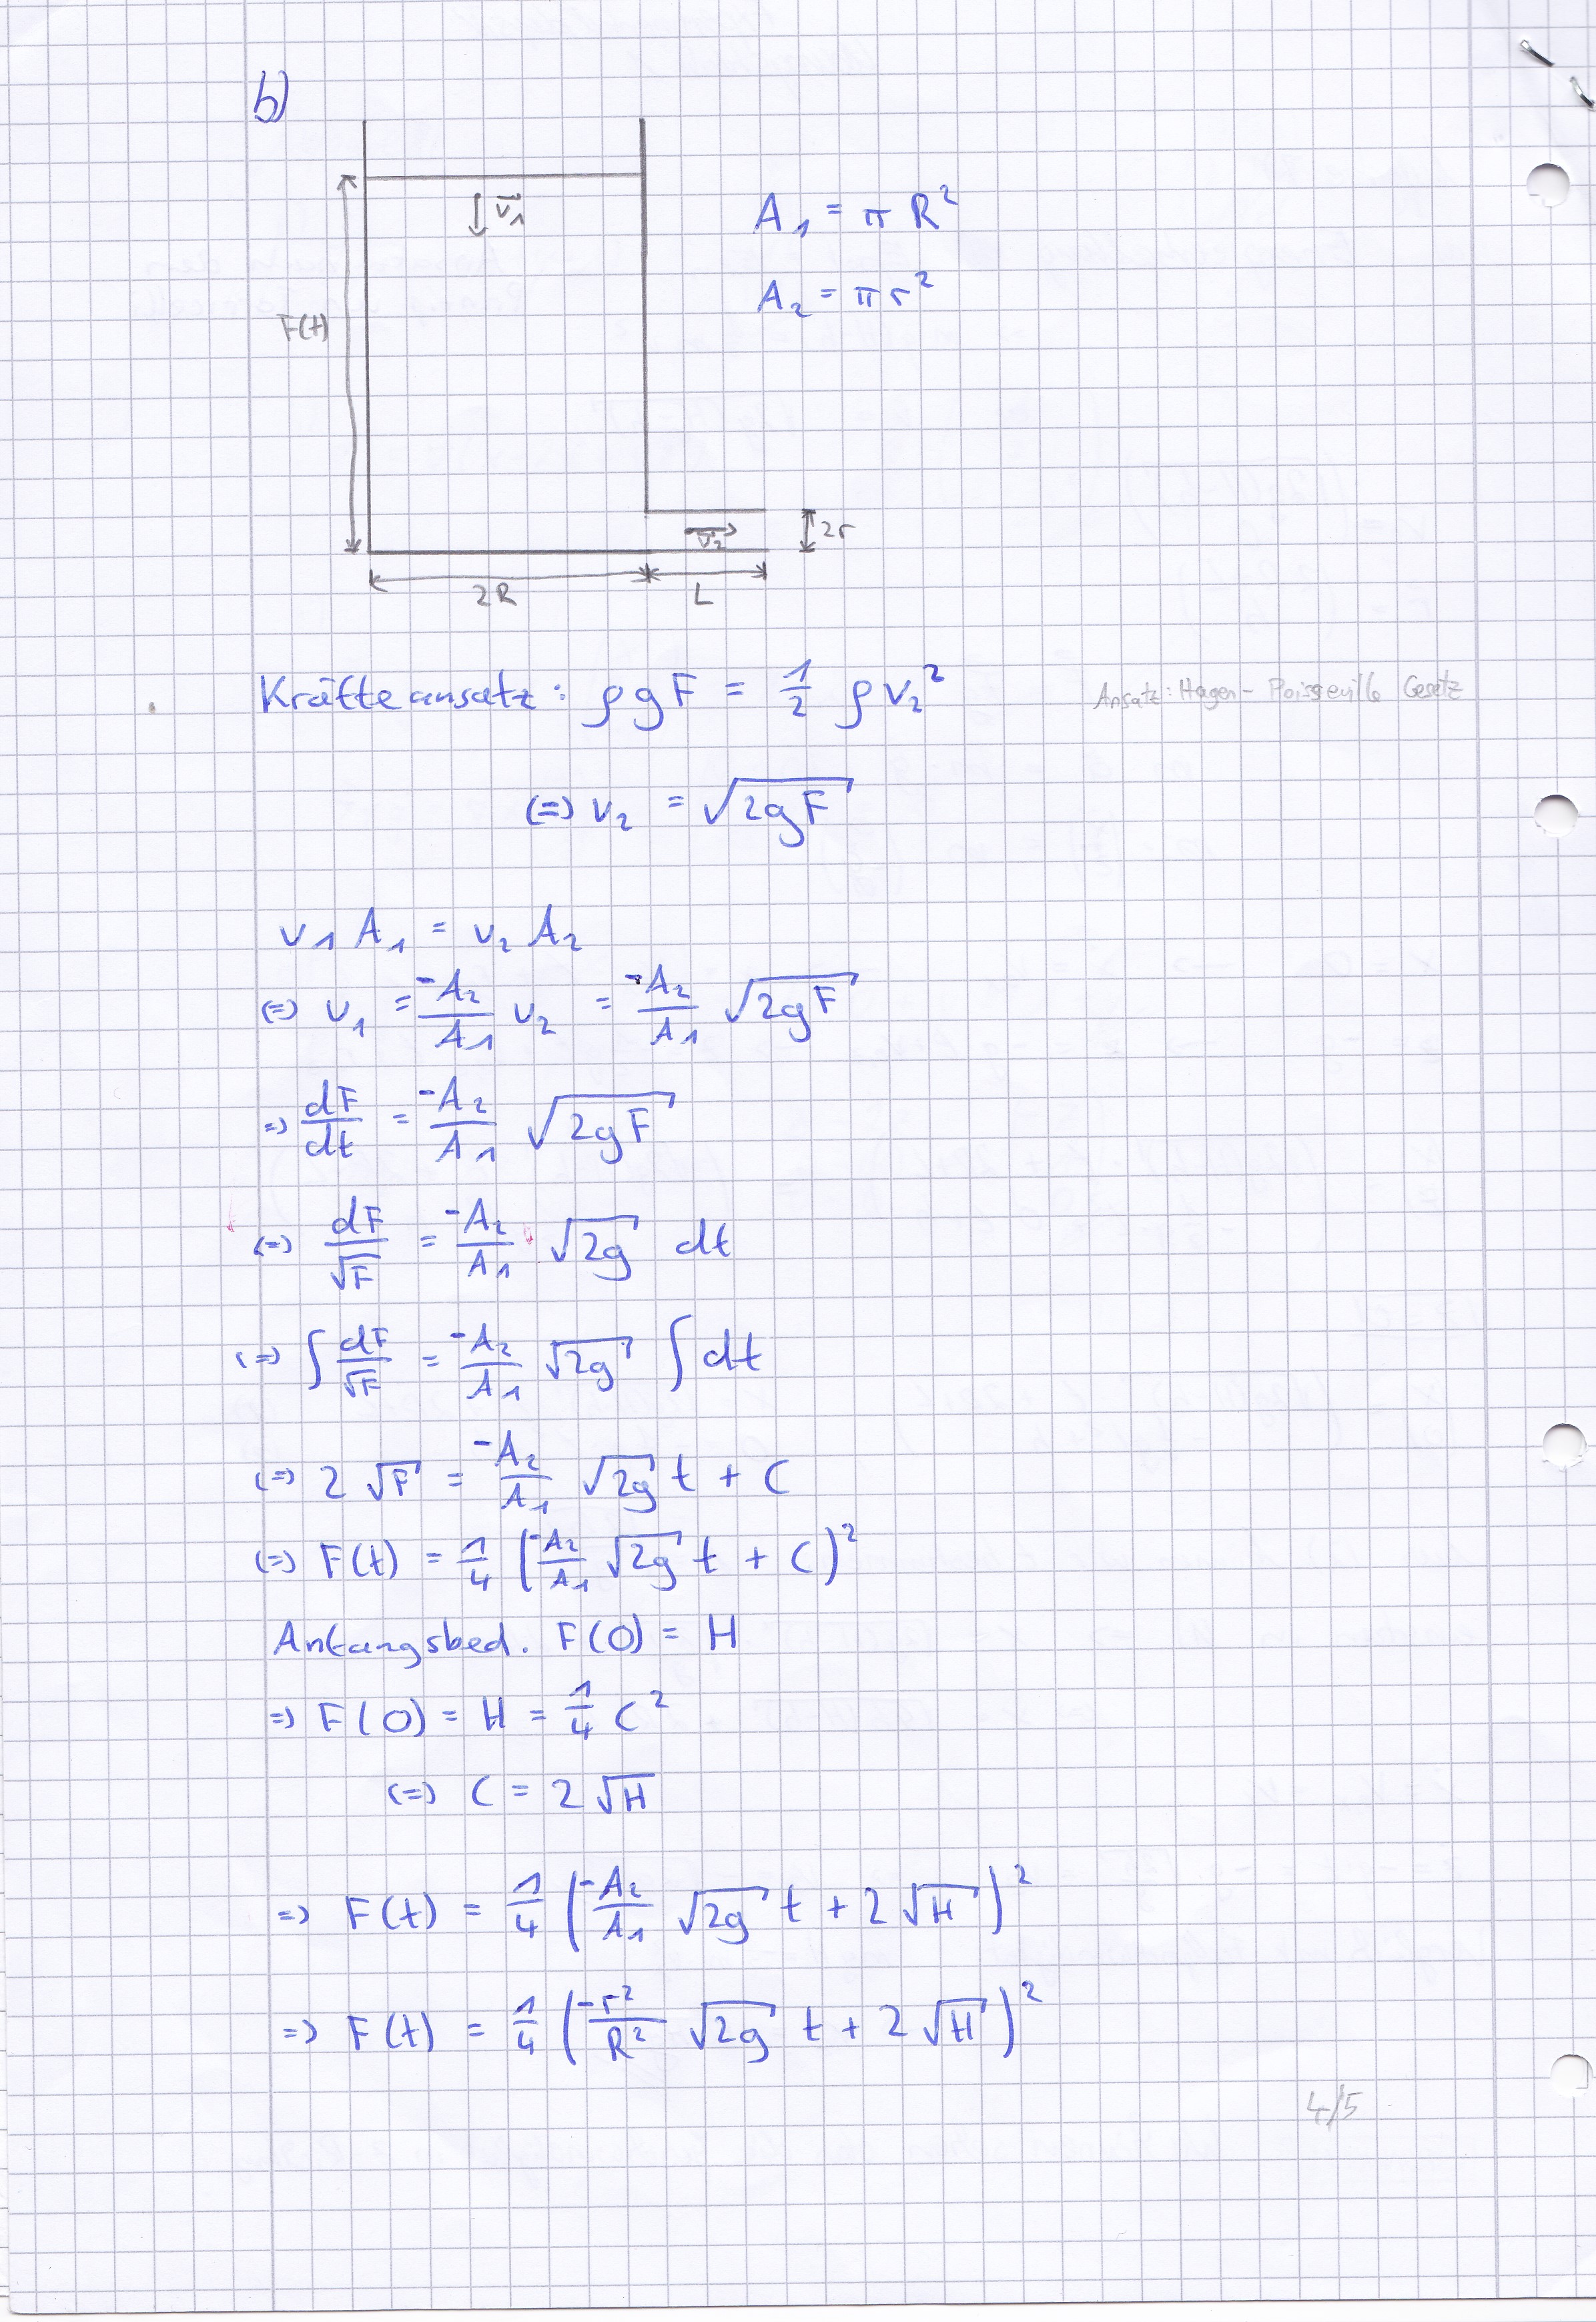 b)
v⃗₁
A₁ = π R²
A₂ = π r²
F(t)
v⃗₂
2r
2R
L
Kräfteansatz: ρ g F = 1/2 ρ v₂²
Ansatz: Hagen-Poisseuille Gesetz
(=) v₂ = √(2gF)
v₁ A₁ = v₂ A₂
(=) v₁ = -A₂/A₁ v₂ = -A₂/A₁ √(2gF)
=) dF/dt = -A₂/A₁ √(2gF)
(=) dF/√F = -A₂/A₁ √(2g) dt
(=) ∫ dF/√F = -A₂/A₁ √(2g) ∫ dt
(=) 2 √F = -A₂/A₁ √(2g) t + C
(=) F(t) = 1/4 (-A₂/A₁ √(2g) t + C)²
Anfangsbed. F(0) = H
=) F(0) = H = 1/4 C²
(=) C = 2 √H
=) F(t) = 1/4 (-A₂/A₁ √(2g) t + 2 √H)²
=) F(t) = 1/4 (-r²/R² √(2g) t + 2 √H)²
4/5